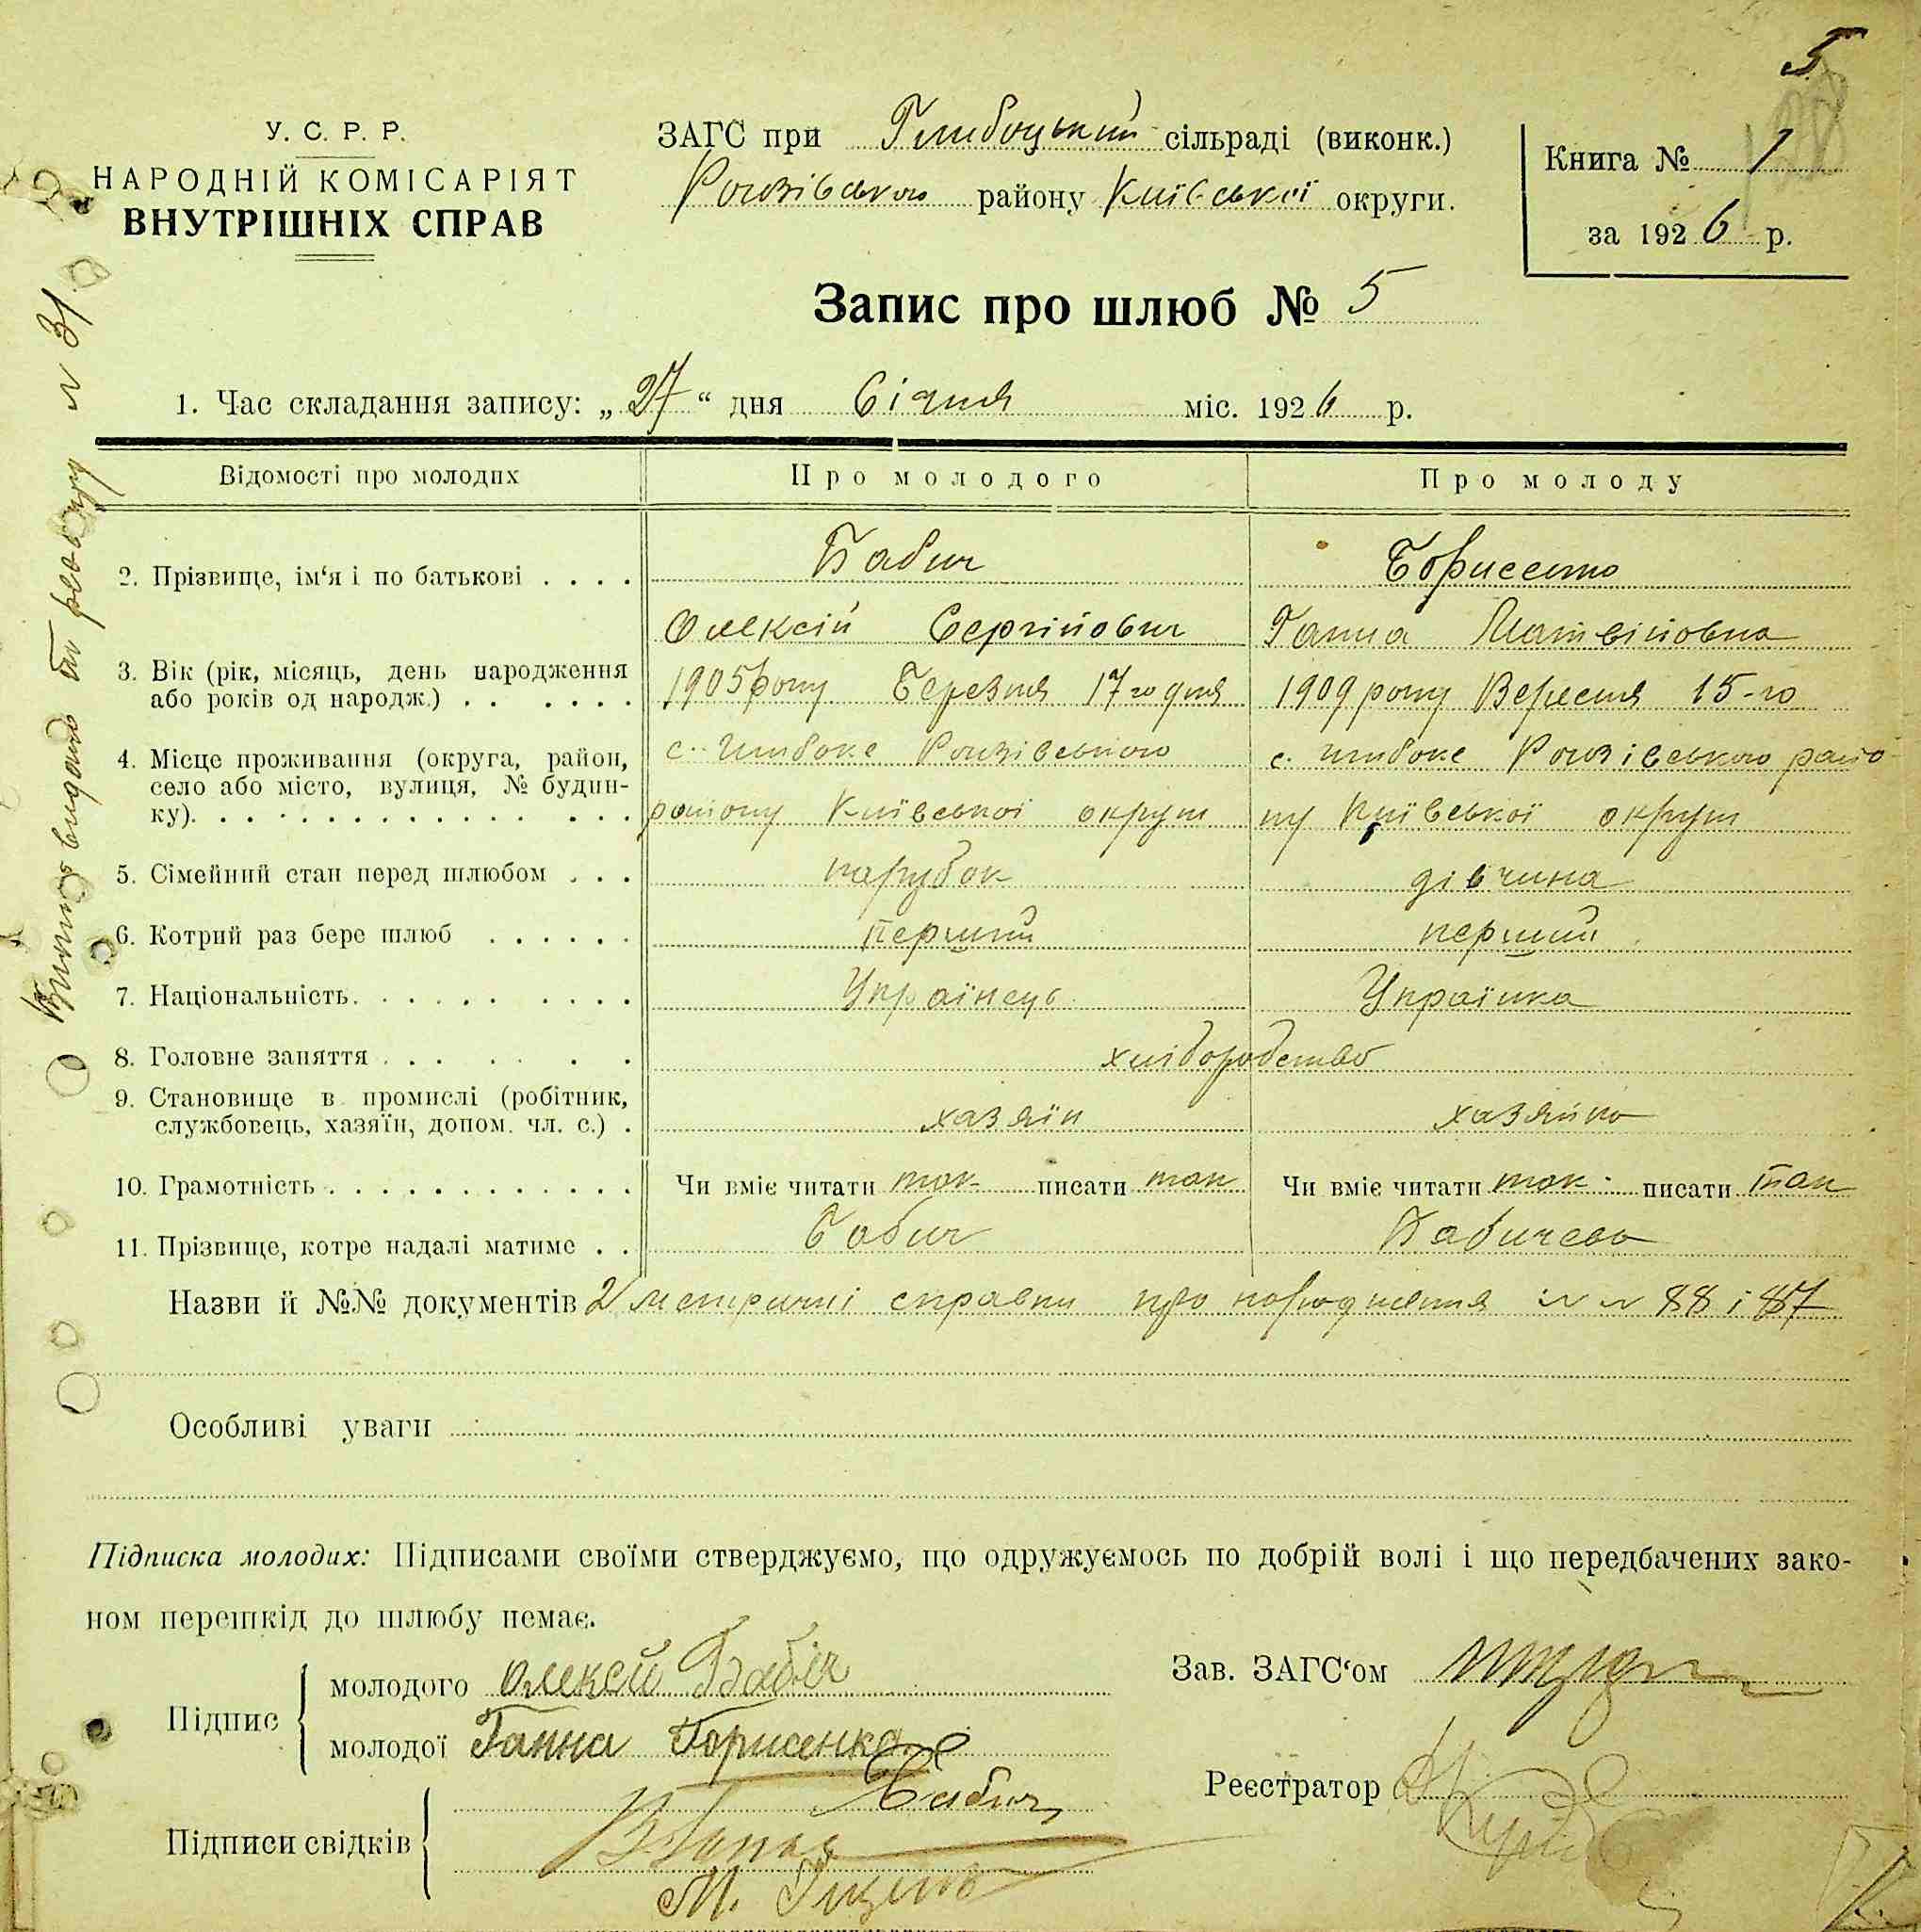 5
У. С. Р. Р.
НАРОДНІЙ КОМІСАРІЯТ
ВНУТРІШНІХ СПРАВ
ЗАГС при Глибоцький сільраді (виконк.)
Рогозівського району Київської округи.
Книга № 1
за 1926 р.
Запис про шлюб № 5
1. Час складання запису: „27“ дня Січня міс. 1926 р.
Відомості про молодих
Про молодого
Про молоду
2. Прізвище, ім‘я і по батькові . . . .
Бабич
Олексій Сергійович
Борисенко
Ганна Матвійовна
3. Вік (рік, місяць, день народження
або років од народж.) . . . . . .
1905 року Березня 17 го дня
1909 року Вересня 15-го
4. Місце проживання (округа, район,
село або місто, вулиця, № будин-
ку). . . . . . . . . . . . . . . .
с. Глибоке Рогозівського
району Київської округи
с. Глибоке Рогозівського райо-
ну Київської округи
5. Сімейний стан перед шлюбом . . .
парубок
дівчина
6. Котрий раз бере шлюб . . . . . .
перший
перший
7. Національність. . . . . . . . . .
Українець
Українка
8. Головне заняття . . . . . .
хліборобство
9. Становище в промислі (робітник,
службовець, хазяїн, допом. чл. с.) .
хазяїн
хазяйка
10. Грамотність . . . . . . . . . . . .
Чи вміє читати так писати так
Чи вміє читати так писати так
11. Прізвище, котре надалі матиме . .
Бабич
Бабичева
Назви й №№ документів 2 метричні справки про народження №№ 88 і 87
Особливі уваги
Підписка молодих: Підписами своїми стверджуємо, що одружуємось по добрій волі і що передбачених зако-
ном перешкід до шлюбу немає.
Підпис
молодого Олексій Бабіч
молодої Ганна Борисенко
Підписи свідків
Бабич
М.
Зав. ЗАГС‘ом
Реєстратор
Виписъ видано № 31